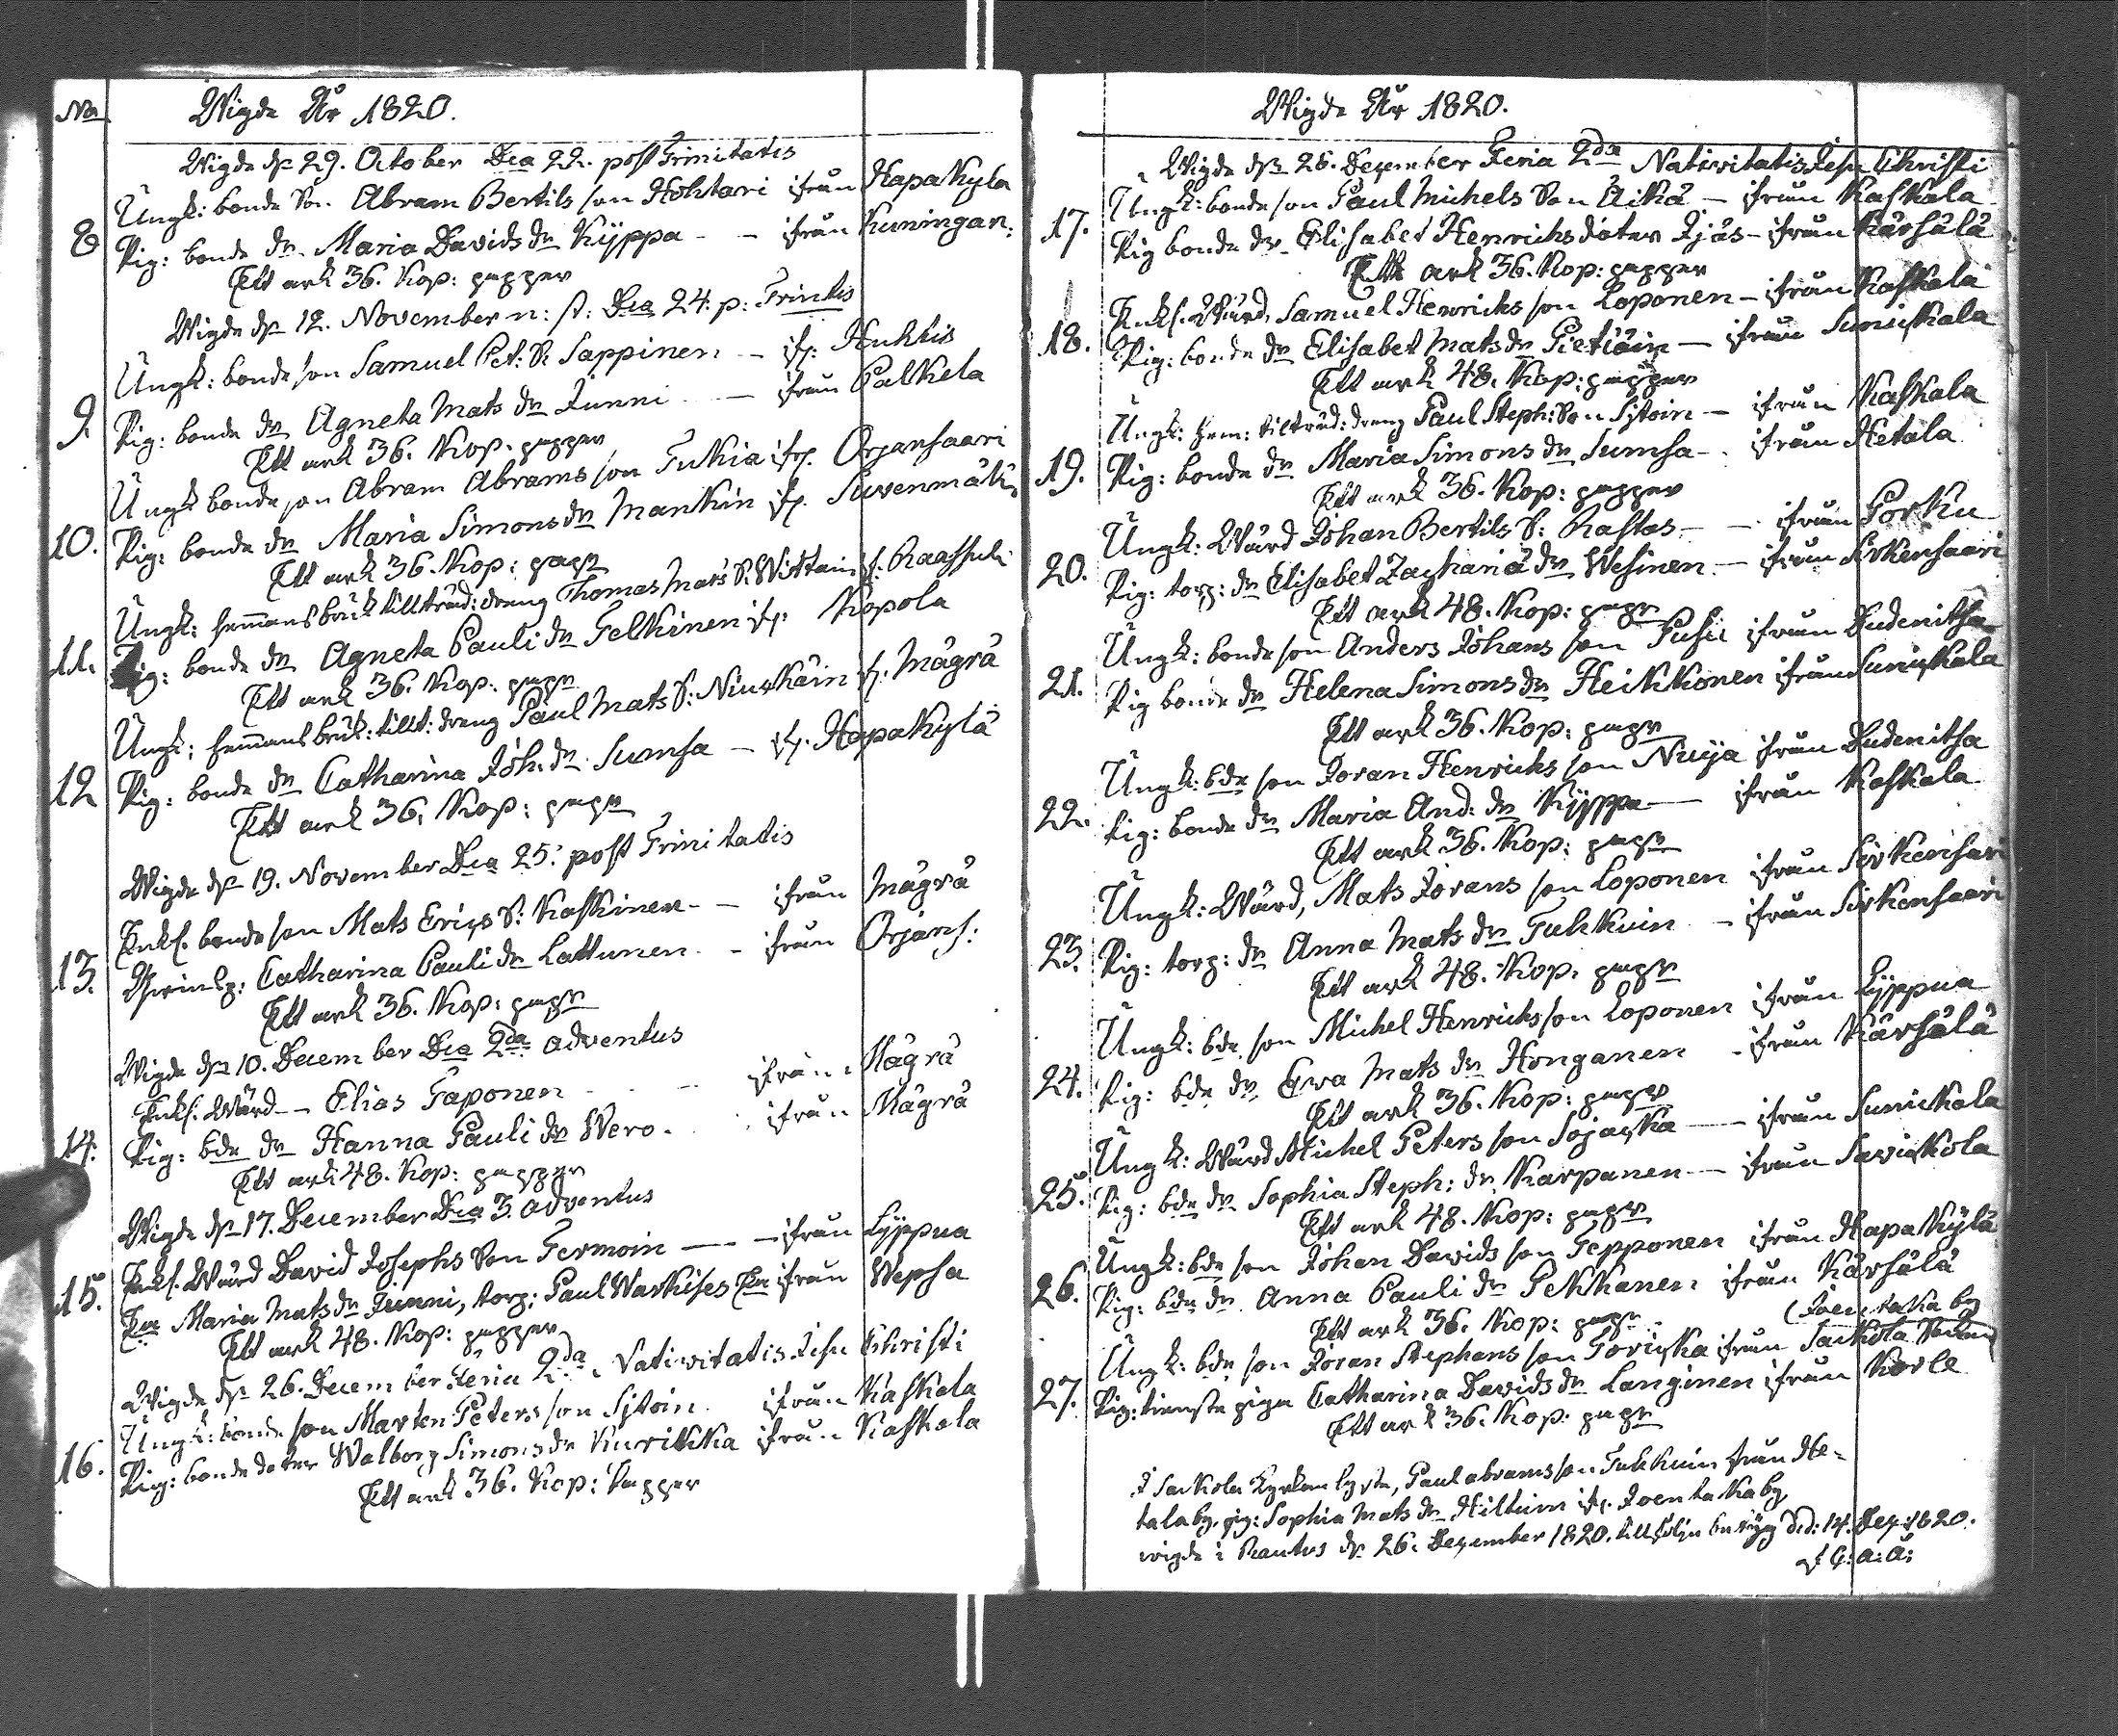 No Wigde År 1820.
Wigde dn 29. October Dca 22. post Trinitatis
Ungk: bonde Son Abram Bertils son Hohtari ifrån Hapakyla
8 Pig: bonde dr Maria Davids dr Kyppa - - ifrån Kuningan:
Ett ark 36. Kop: papper
Wigde dn 12. November n: st: Dca 24. p: Trintis
Ungk: bonde son Samuel Pet: S. Sappinen - ifr. Huhtis
9. Pig: bonde dr Agneta Mats dr Junni - ifrån Palkela
Ett ark 36. Kop. papper
Ungk bonde son Abram Abrams son Tukia ifr. Orjansaari
10. Pig: bonde dr Maria Simons dr Mankin ifr. Suvenmäki
Ett ark 36. Kop: papr
Ungk: hemmansbruk tillträd: dreng Thomas Mats S. Wittain if. Raassuli
11. Pig: bonde dr Agneta Pauli dr Telkinen ifr. Kopola
Ett ark 36. Kop: papr
Ungk: hemmansbruk: tillt: dreng Paul Mats S: Niuskain if. Mägrä
12 Pig: bonde dr Catharina Joh. dr Sumsa - ifr. Hapakylä
Ett ark 36. Kop: papr
Wigde dn 19. November Dca 25. post Trinitatis
Enkl. bonde son Mats Erics S: Kaskinen - - ifrån Mägrä
13. Catharina Pauli dr Lattunen - ifrån Orjans:
Ett ark 36. Kop: papr
Wigde dn 10. December Dca 2da adventus
Enkl. Wärd - Elias Taponen - - ifrån Mägrä
14. Pig: bde dr Hanna Pauli dr Wero - ifrån Mägrä
Ett ark 48. Kop: papper
Wigde dn 17. December Dca 3. adventus
Enkl. Wärd David Josephs Son Termoin - - ifrån Lyppua
15. Maria Mats dr Junni, torp: Paul Warkises ifrån Wepsa
Ett ark 48. Kop: papper
Wigde dn 26. December Feria 2da Nativitatis Jesu Christi
Ungk: bonde son Marten Peters son Sitoin ifrån Kaskala
16. Pig: bonde doter Walborg Simons dr Kurikka ifrån Kaskala
Ett ark 36. Kop: Papper
Wigde År 1820.
Wigde dn 26. December Feria 2da Nativitatis Jesu Christi
Ungk: bonde son Paul Michels Son Äikä - ifrån Kaskala
17. Pig bonde dr Elisabet Henrichs doter Ijäs - ifrån Kärsälä
Ett ark 36. Kop: papper
Enkl. Wärd, Samuel Henrichs son Loponen - ifrån Kaskala
18. Pig: bonde dr Elisabet Mats dr Pietiäin - ifrån Sunickala
Ett ark 48. Kop: papper
Ungk: hem: tillträd: dreng Paul Steph: Son Sitoin - ifrån Kaskala
19. Pig: bonde dr Maria Simons dr Sumsa - ifrån Hetala
Ett ark 36. Kop: papper
Ungk: Wärd Johan Bertils S: Rastas - - ifrån Porku
20. Pig: torp: dr Elisabet Zachariä dr Wesinen - ifrån Sirkensaari
Ett ark 48. Kop: papr
Ungk: bonde son Anders Johans son Pusii ifrån Dudenitsa
21. Pig bonde dr Helena Simons dr Heikkonen ifrån Sunickala
Ett ark 36. Kop: papr
Ungk: bde son Joran Henrichs son Nuija ifrån Dudenitsa
22. Pig: bonde dr Maria And: dr Kyppa - ifrån Kaskala
Ett ark 36. Kop: papr
Ungk: Wärd, Mats Jorans son Loponen ifrån Sirkensari
23. Pig: torp: dr Anna Mats dr Tuhkuin - ifrån Sirkensaari
Ett ark 48. Kop. papr
Ungk: bde son Michel Henrichs son Loponen ifrån Lyppua
24. Pig: bde dr Ewa Mats dr Honganen - ifrån Kärsälä
Ett ark 36. Kop: papper
Ungk: Wärd Michel Peters son Sojacka - ifrån Sunickala
25. Pig: bde dr Sophia Steph: dr Karpanen - ifrån Savickola
Ett ark 48. Kop: papr
Ungk: bde son Johan Davids son Tepponen ifrån Hapakylä
26. Pig: bde dr Anna Pauli dr Pekkanen ifrån Kärsälä
Ett ark 36. Kop: papr
(Joentaka by
Ungk: bde son Joran Stephans son Toricka ifrån Sackola Socken
27. Pig: tienste piga Catharina Davids dr Langinen ifrån Korle
Ett ark 36. Kop. papr
I Sackola Kyrkan lyste, Paul abrams son Tuhkuin från He-
tala by, pig: Sophia Mats dr Hiltuin ifr. Joentaka by
wigde i Rautus dn 26. December 1820. till följe betyg d.d: 14. Dec. 1820.
af G: A: A: